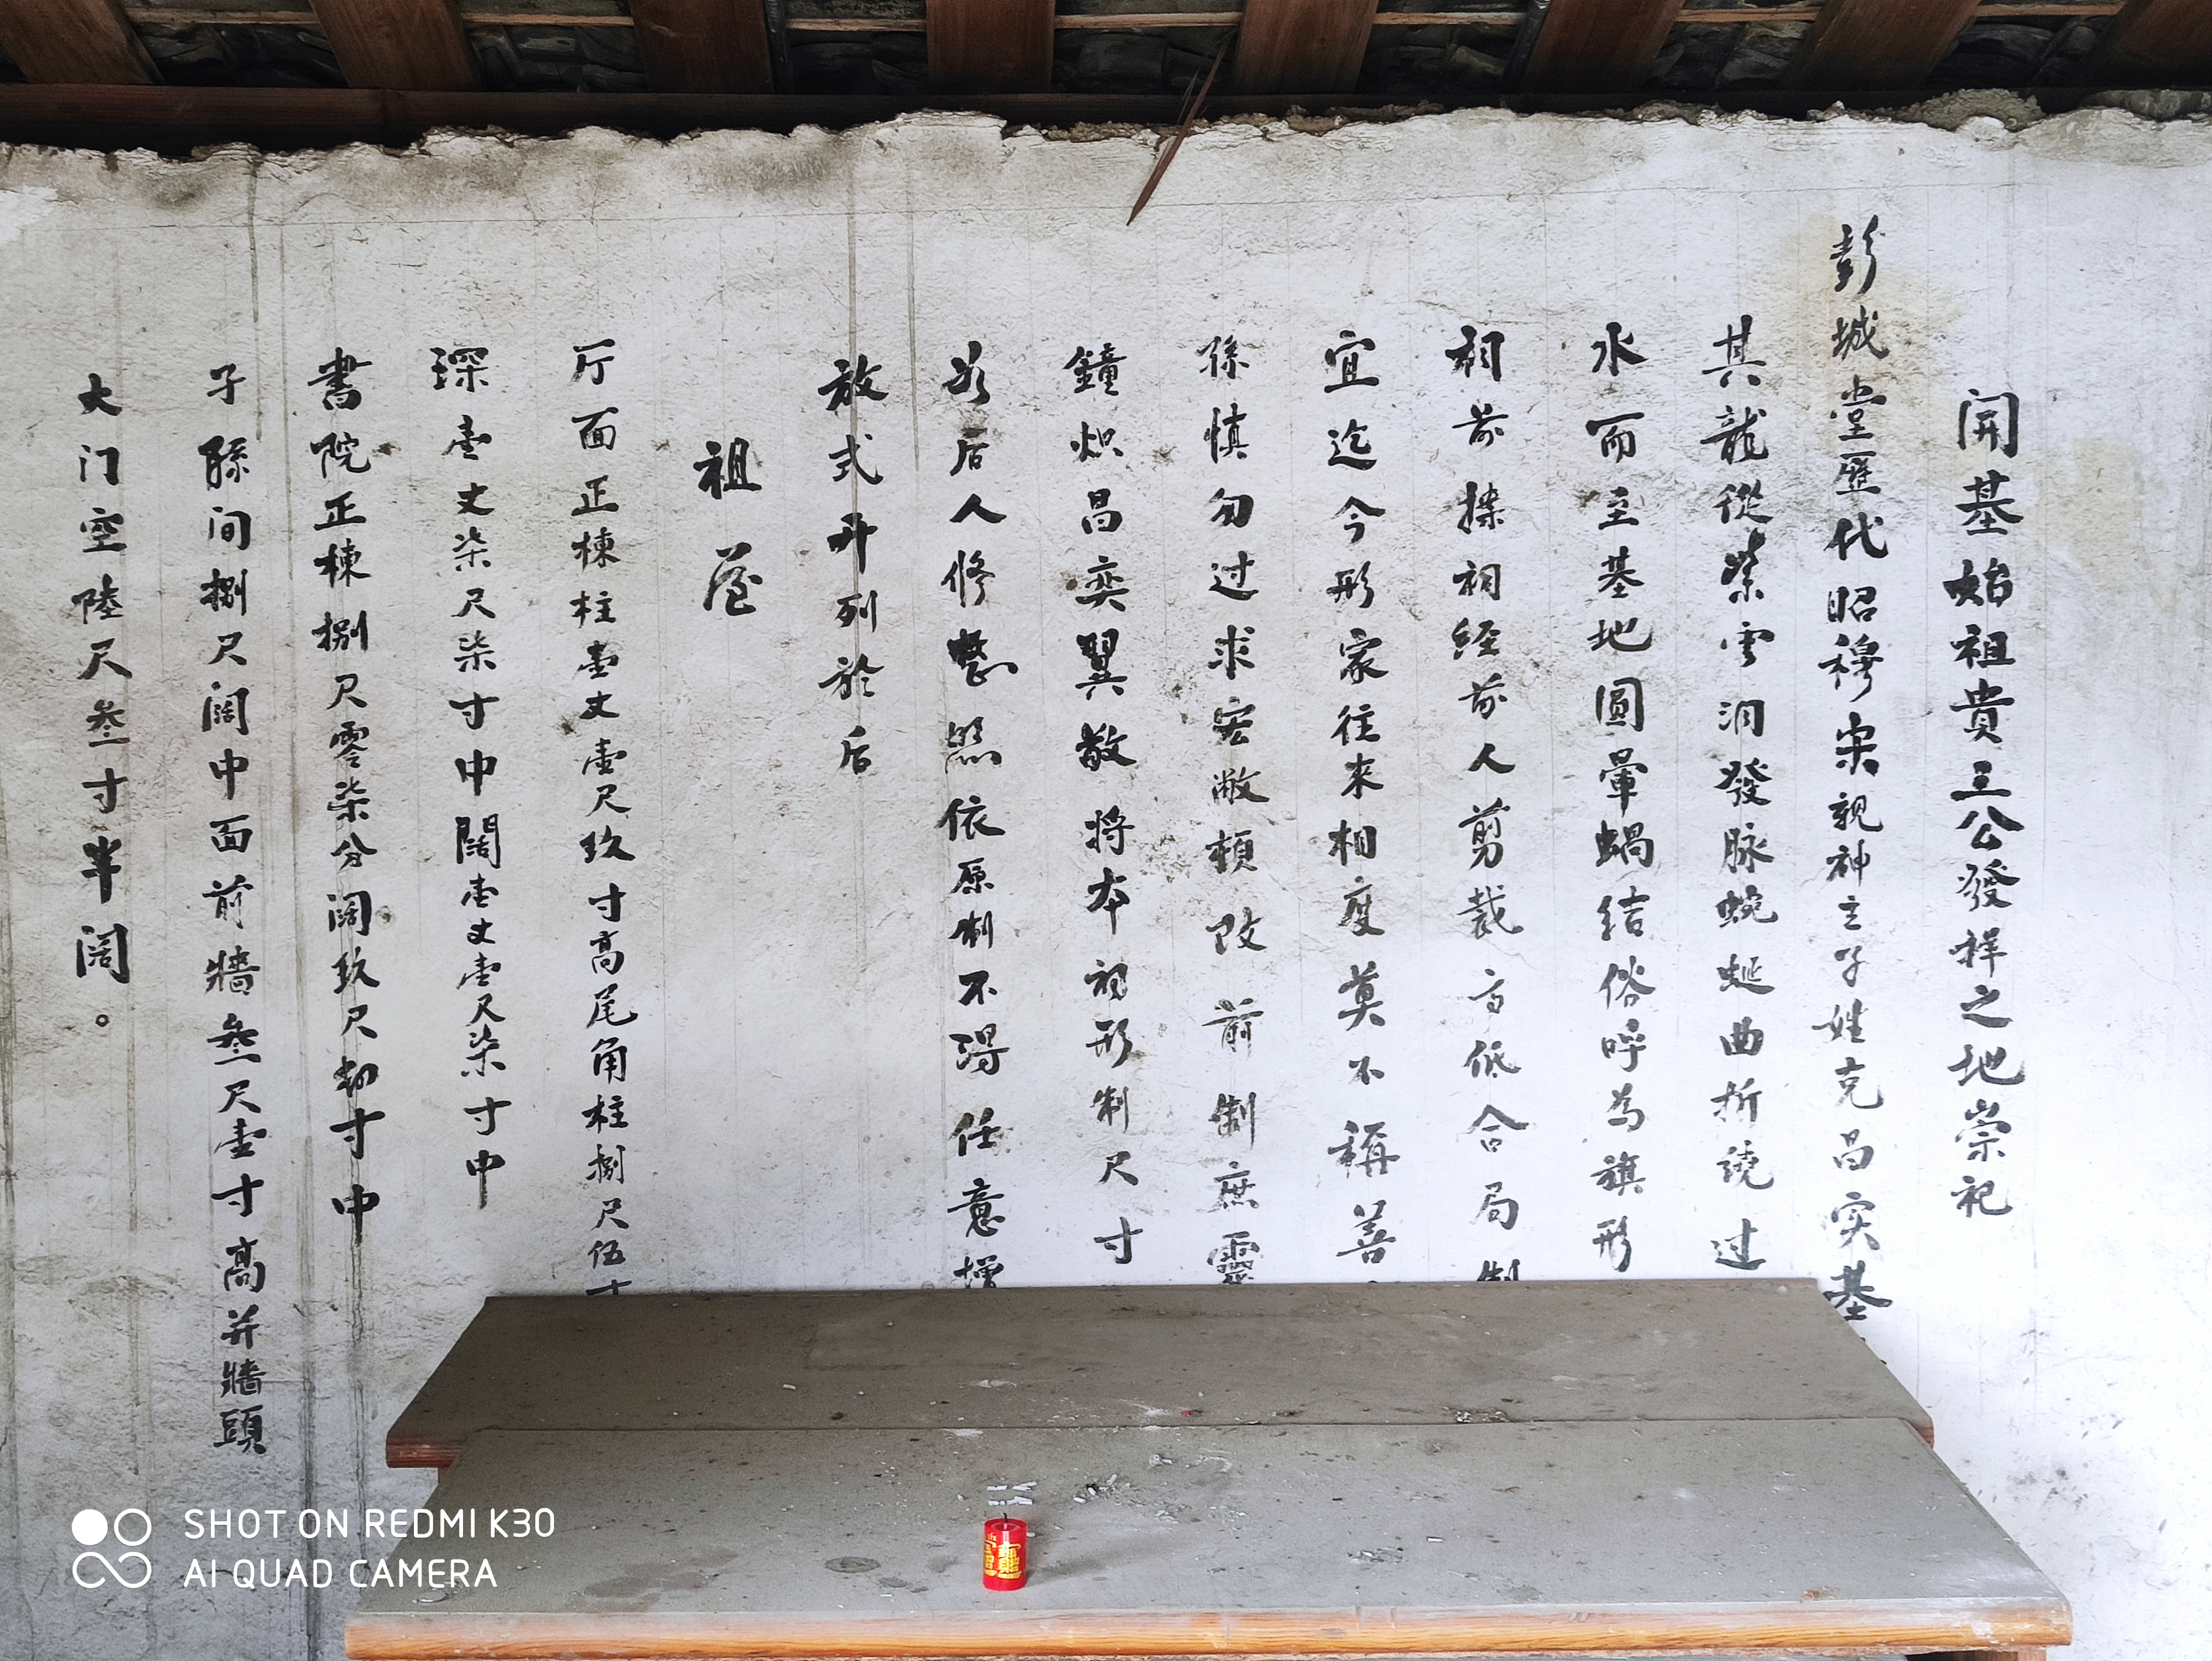 開基始祖貴三公發祥之地崇祀
彭城堂歷代昭穆宗親神主子姓克昌实基
其龍從紫雲洞發脉蜿蜒曲折繞过
水而至基地圓暈蝸结俗呼為旗形
祠前搽祠经前人剪裁高低合局制
宜迄今形家往来相度莫不稱善
孫慎勿过求宏敞頓改前制庶靈
鐘炽昌奕翼敬将本祠形制尺寸
后人修整照依原制不得任意增
放式开列於后
祖屋
厅面正棟柱壹丈壹尺玖寸高尾角柱捌尺伍寸
深壹丈柒尺柒寸中闊壹丈壹尺柒寸中
書院正棟捌尺零柒分阔玖尺初寸中
子孫间捌尺阔中面前牆叁尺壹寸高并牆頭
大门空陸尺叁寸半阔。
SHOT ON REDMI K30
AI QUAD CAMERA